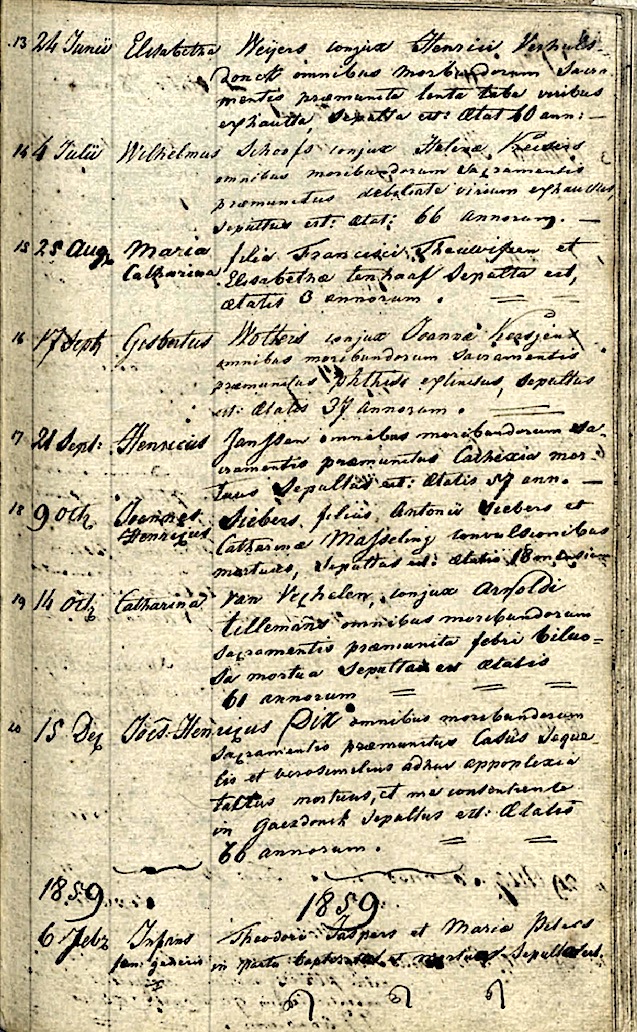 13 24 Junii Elisabetha Weijers conjux Henrici Verhuls-
donck omnibus moribundorum Sacra
mentis præmunita lenta tabe viribus
exhausta, sepulta est: Ætat 60 ann: —
14 4 Julii Wilhelmus Schoofs conjux Helenæ
omnibus moribundorum sacramentis
præmunitus debilitate virium exhaustus
sepultus est: ætat: 66 annorum. —
15 25 Aug. Maria filia Francisci Theuwissen et
Catharina Elisabethæ tenhaaf sepulta est,
ætatis 3 annorum.
16 17 Sept Gisbertus Wolters conjux Joannæ
omnibus moribundorum sacramentis
præmunitus phthisi extinctus, sepultus
est: ætatis 37 annorum.
17 21 Sept: Henricus Janssen omnibus moribundorum sa-
cramentis præmunitus Cachexia mor-
tuus sepultus est: ætatis 57 ann. —
18 9 Octb Joannes Siebers filius Antonii Siebers et
Henricus Catharinæ Masseling convulsionibus
mortuus, sepultus est: ætatis 18 mensium
19 14 Octb Catharina van Vechelen, conjux Arnoldi
tillemans omnibus moribundorum
sacramentis præmunita febri bilio=
sa mortua sepulta est ætatis
61 annorum
20 15 Dec Joës-Henricus Dix omnibus moribundorum
sacramentis præmunitus Casus seque-
lis et verosimilius adhuc appoplexia
tactus mortuus, et me consentiente
in Gaesdonck sepultus est: Ætatis
66 annorum.
1859 1859
6 Febr Infans Theodori Jaspers et Maria Peters
fem. generis in partu baptizatus et mortuus sepultus est.